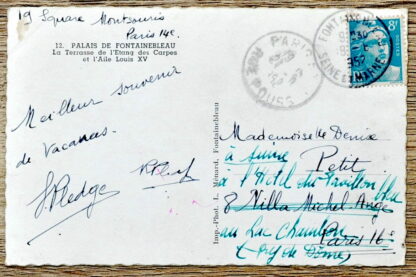 19 Square Montsouris
Paris 14e.
12. PALAIS DE FONTAINEBLEAU
La Terrasse de l'Etang des Carpes
et l'Aile Louis XV
Meilleur souvenir
de vacances.
Imp.-Phot. L. Ménard, Fontainebleau
PARIS
FONTAINEBLEAU
SEINE ET MARNE
8F
Mademoiselle Denise
à suivre Petit
à l'Hôtel du Pavillon bleu
8 Villa Michel Ange
au Lac Chambon
Paris 16e
(Puy de Dôme)